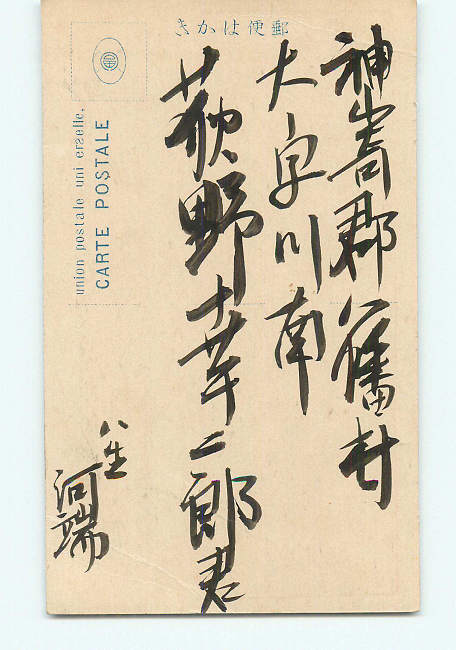 郵便はかき
神嵜郡八幡村
大字川南
荻野二郎君
八生
河端
union postale uni erselle,
CARTE POSTALE